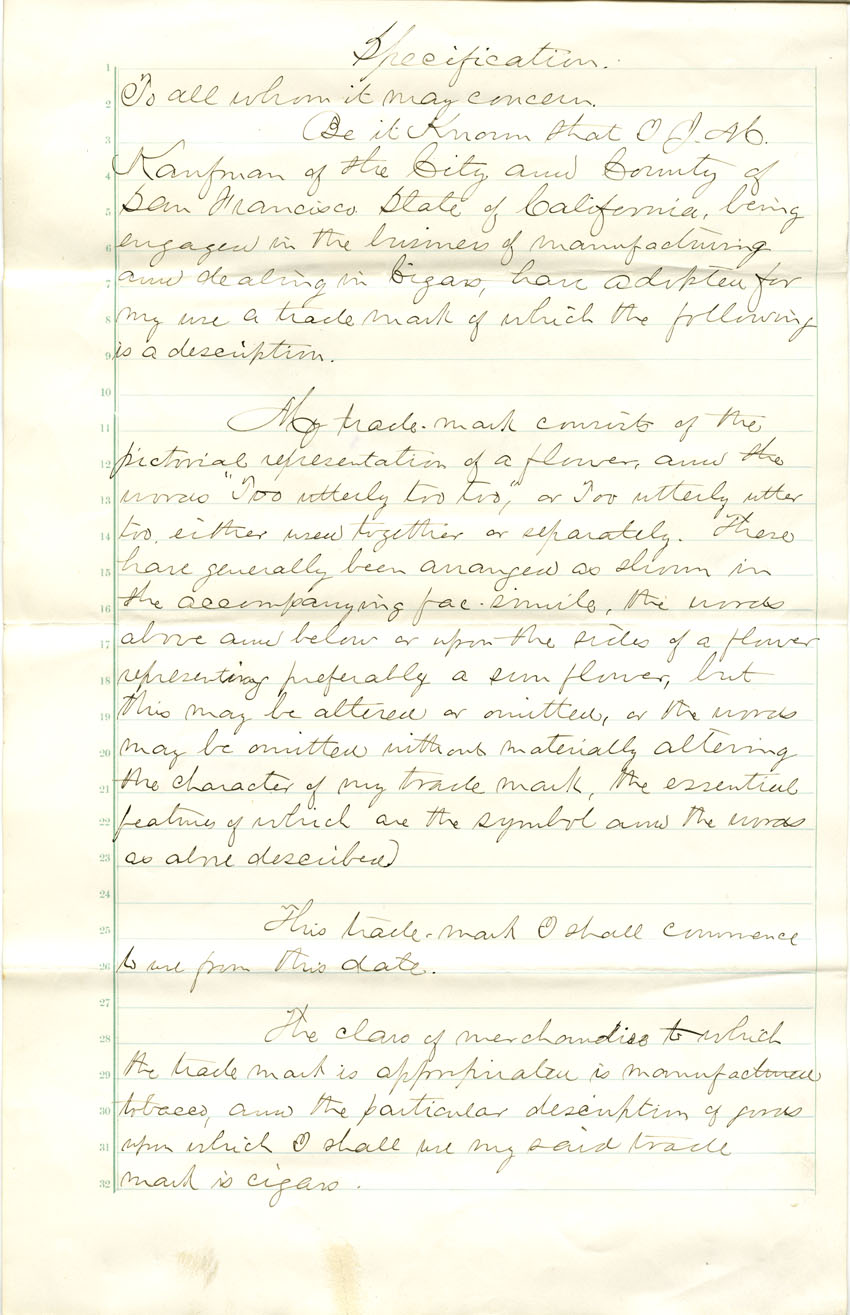 Specification.
1
To all whom it may concern.
2
Be it Known that I J. M.
3
Kaufman of the City and County of
4
San Francisco State of California, being
5
engaged in the business of manufacturing
6
and dealing in Cigars, have adopted for
7
my use a trade mark of which the following
8
is a description.
9
10
My trade-mark consists of the
11
pictorial representation of a flower, and the
12
words "Too utterly too too," or Too utterly utter
13
too, either used together or separately. These
14
have generally been arranged as shown in
15
the accompanying fac-simile, the words
16
above and below or upon the sides of a flower
17
representing preferably a sun flower, but
18
this may be altered or omitted, or the words
19
may be omitted without materially altering
20
the character of my trade mark, the essential
21
features of which are the symbol and the words
22
as above described
23
24
This trade-mark I shall commence
25
to use from this date.
26
27
The class of merchandise to which
28
the trade mark is appropriated is manufactured
29
tobacco, and the particular description of goods
30
upon which I shall use my said trade
31
mark is cigars.
32